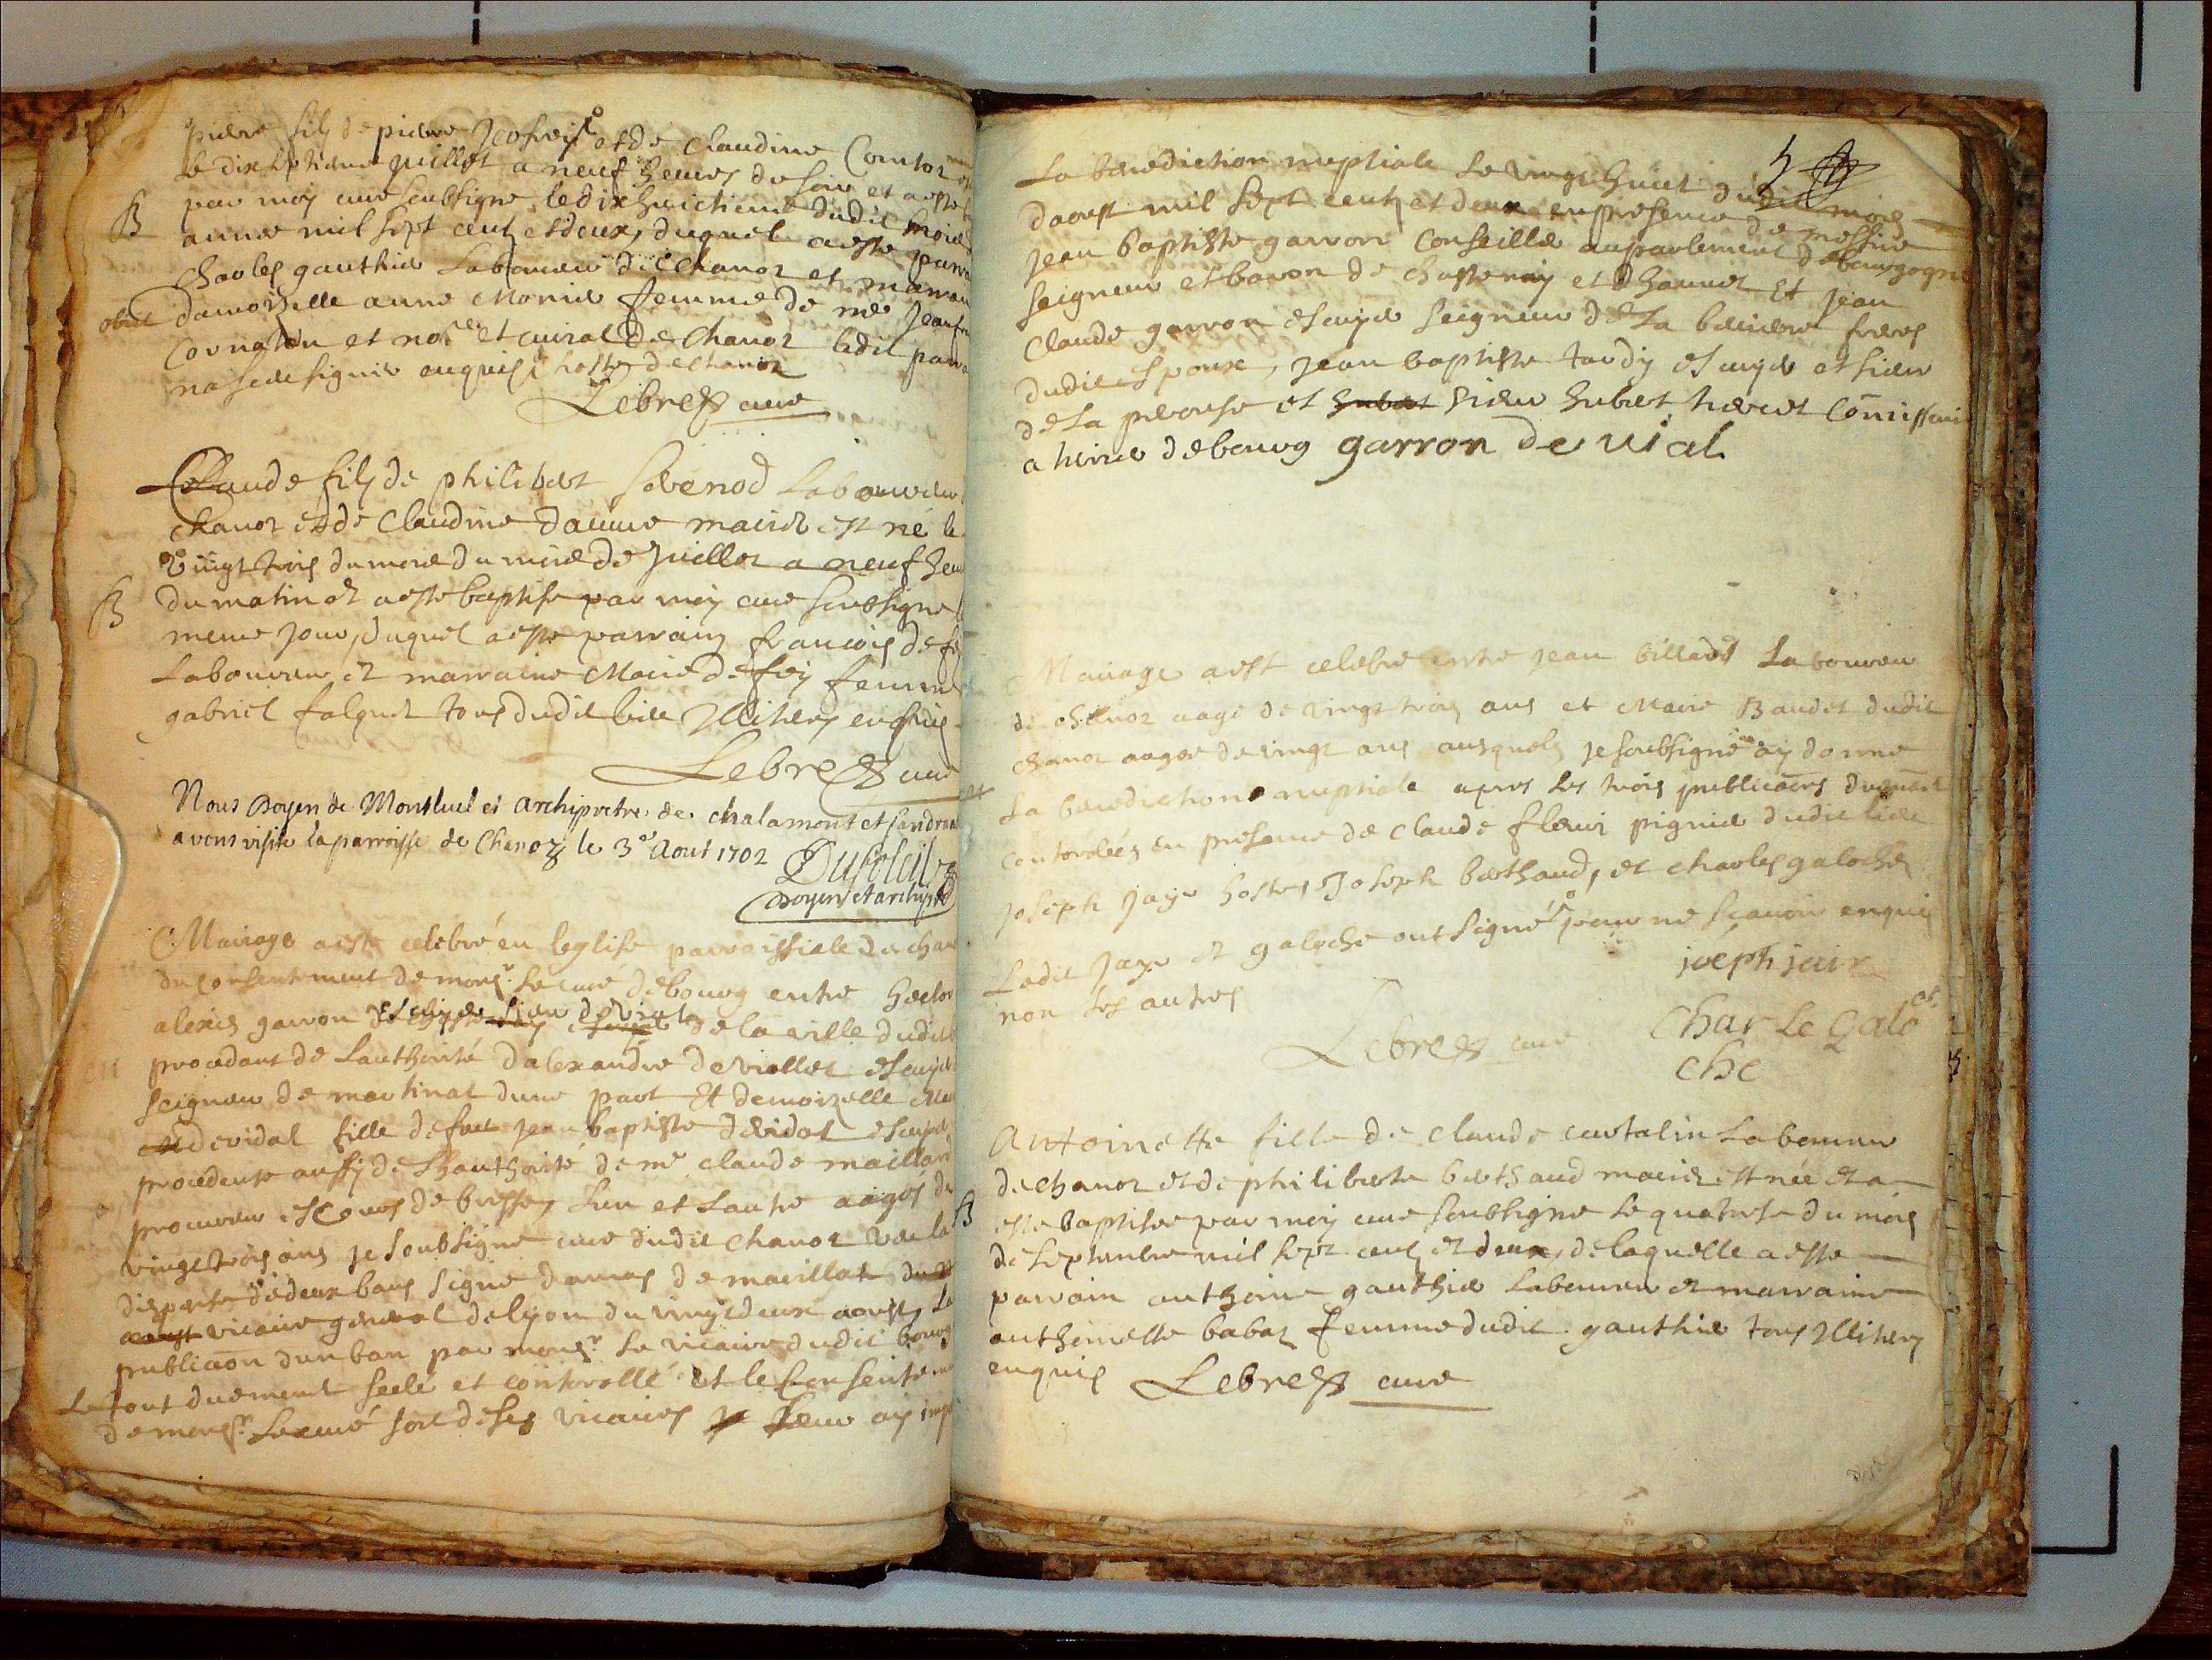 pierre fils de pierre Jeofray et de Claudine Contor
le dix septieme juillet a neuf heures du soir et a este
par moy cure soubsigne le dix huictieme dudit mois
B
annee mil sept cent et deux, duquel a este parrain
Charles gauthier Laboureur de Chanoz et marraine
obiit damoiselle anne Monier femme de me Jean
Cornaton et nore et curial de Chanoz ledit parrain
na sceu signer enquis hoste de Chanoz
Lebres cure
Claude fils de philibert Sevenod Laboureur
chanoz et de Claudine Daurre mariez est né le
vingt trois du mois du mois de Juillet a neuf heures
B
du matin et a este baptise par moy cure soubsigne
meme jour, duquel a este parrain francois de fey
Laboureur et marraine Marie de fey femme
gabriel falquet tous dudit lieu Illiteres enquis
Lebres cure
Nous Doyen de Montluel et archiprêtre de chalamont et Sandrans
avons visité la parroisse de Chanoz le 3e Aout 1702
Doyen et archip
Mariage a este celebré en leglise parroissiale de chanoz
du consentement de monsr. Le curé de bourg entre hector
alexis garron escuyer sieur de vial de la ville dudit
procedant de Lauthorité dalexandre de viollet escuyer
seigneur de martinat dune part Et demoiselle
de vidal fille de feu jean baptiste de vidal escuyer
procedante aussy de Lhauthorité de mr claude maillard
procureur es Cours de bresse, Lun et Lautre aages de
vingt trois ans je soubsigne cure dudit chanoz veu la
dispense de deux bans signe damas de marillat
aoust vicaire general de lyon du vingt deux aoust, La
publicaon dun ban par monsr. Le vicaire dudit bourg
Le tout duement seelé et controllé et le Consentement
de monsr. Lecuré soit de ses vicaires je Leur ay imp
5
La benediction nuptiale Le vingt huict dudit mois
daoust mil sept cents et deux en presence de messire
Jean baptiste garron Conseiller au parlement de bourgogne
seigneur et baron de chastenay et Et jean
Claude garron escuyer seigneur de La beviere freres
dudit espoux, jean baptiste tardy escuyer et sieur
de La perouse et hubert sieur hubert Comissaire
a terrier de bourg garron de vial
Mariage a est celebre entre jean billard Laboureur
de chanoz aage de vingt trois ans et Marie Baudet dudit
chanoz aagee de vingt ans ausquels je soubsigne ay donne
La benediction nuptiale apres les trois publicaons duement
controlées en presence de claude fleuri pignier dudit lieu
joseph jayr hoste, Joseph berthaud, et charles galoche
Ledit jayr et galoche ont signé pour ne scavoir enquis
non les autres
joeph jair
Lebres cure
CharLe galo
che
Antoinette fille de claude curtalin Laboureur
de chanoz et de philiberte berthaud mariez est née et a
B
este baptisee par moy cure soubsigne Le quatorse du mois
de septembre mil sept cents et deux, de laquelle a este
parrain anthoine gauthier Laboureur et marraine
anthoinette babaz femme dudit gauthier tous Illiteres
enquis Lebres cure